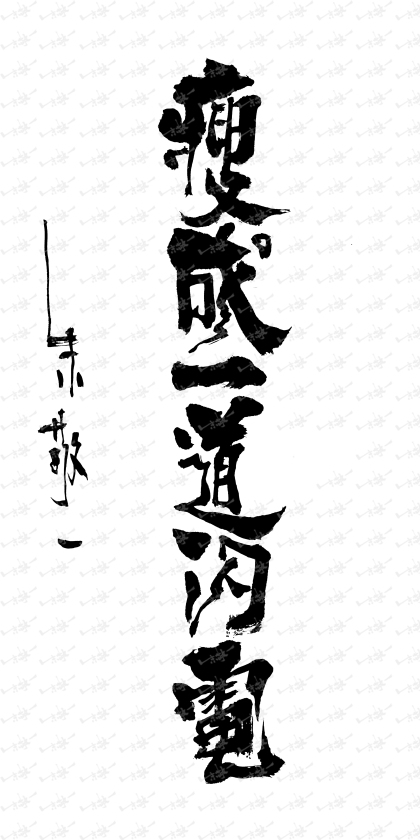 瘦成一道闪电
朱敬一